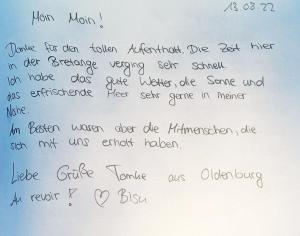 13.03.22
Moin Moin!
Danke für den tollen Aufenthalt. Die Zeit hier
in der Bretange verging sehr schnell.
Ich habe das gute Wetter, die Sonne und
das erfrischende Meer sehr gerne in meiner
Nähe.
Am Besten waren aber die Mitmenschen, die
sich mit uns erholt haben.
Liebe Grüße Tomke aus Oldenburg
Au revoir! ♡ Bisu